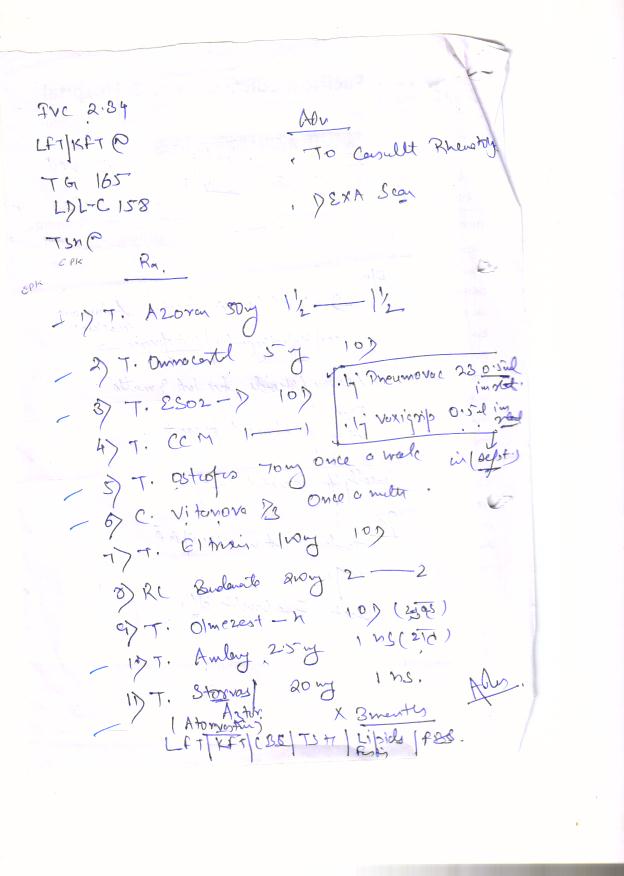 FVC 2.34
LFT/KFT N
TG 165
LDL-C 158
TSH N
CPK
CPK
Adv
. To Consult Rheumatology
. DEXA Scan
Rx.
1) T. Azoran 50mg 1½ —— 1½
2) T. Omnacortil 5 mg 1 OD
3) T. ESOZ-D 1 OD
4) T. CCM 1 —— 1
. Inj Pneumovac 23 0.5ml
im stat.
. Inj Vaxigrip 0.5ml im
in (Sept.)
5) T. Osteofos 70mg once a week
6) C. Vitanova D3 Once a month.
7) T. 1 OD
8) RC Budamate 200mg 2 —— 2
9) T. Olmezest-H 1 OD (सुबह)
10) T. Amlong 2.5mg 1 HS (रात)
11) T. Storvas/ 20mg 1 HS.
Aztor
(Atorvastatin)
x 3 months
LFT/KFT/CBC/TSH/Lipids/FBS.
Fasting